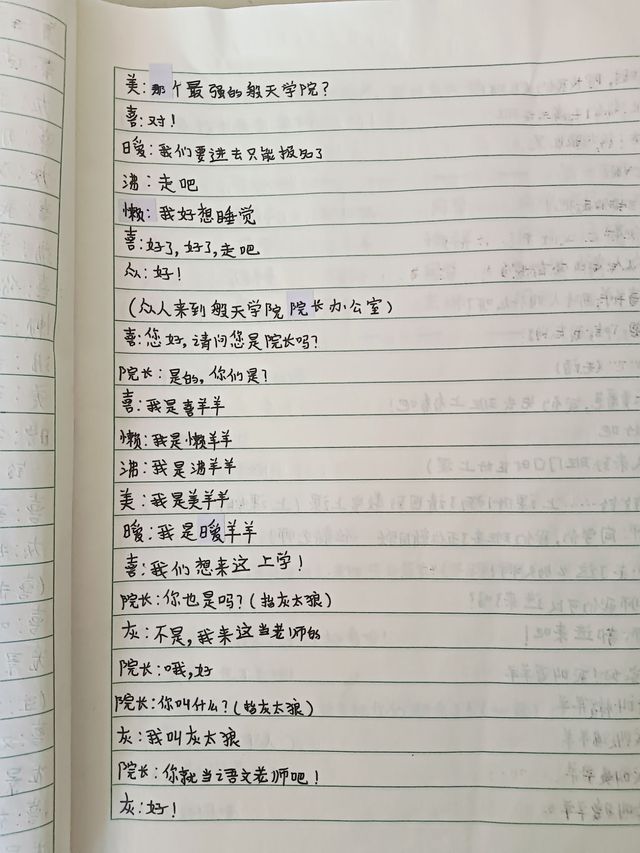 美:那个最强的般天学院?
喜:对!
暖:我们要进去只能报名了
沸:走吧
懒:我好想睡觉
喜:好了,好了,走吧
众:好!
(众人来到般天学院院长办公室)
喜:您好,请问您是院长吗?
院长:是的,你们是?
喜:我是喜羊羊
懒:我是懒羊羊
沸:我是沸羊羊
美:我是美羊羊
暖:我是暖羊羊
喜:我们想来这上学!
院长:你也是吗?(指灰太狼)
灰:不是,我来这当老师的
院长:哦,好
院长:你叫什么?(指灰太狼)
灰:我叫灰太狼
院长:你就当语文老师吧!
灰:好!